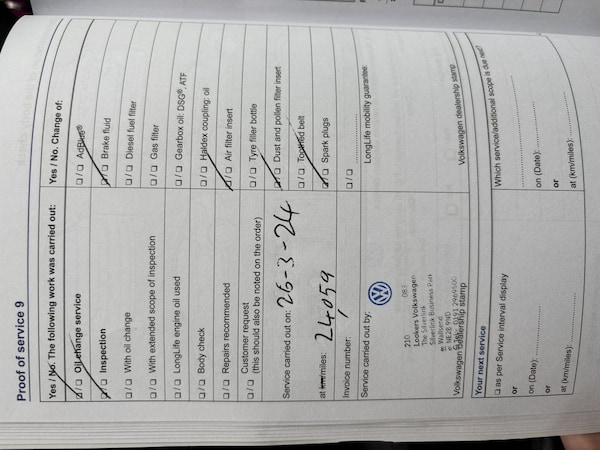 Proof of service 9
Yes / No. The following work was carried out:
☐ / ☐ Oil change service
☐ / ☐ Inspection
☐ / ☐ With oil change
☐ / ☐ With extended scope of inspection
☐ / ☐ LongLife engine oil used
☐ / ☐ Body check
☐ / ☐ Repairs recommended
☐ / ☐ Customer request
(this should also be noted on the order)
Service carried out on: 26-3-24
at km/miles: 24059
Invoice number:
Service carried out by:
210 083
Lookers Volkswagen
The Silverlink
Silverlink Business Park
Wallsend
NE28 9ND
0191 2969500
Volkswagen dealership stamp
Yes / No. Change of:
☐ / ☐ AdBlue®
☐ / ☐ Brake fluid
☐ / ☐ Diesel fuel filter
☐ / ☐ Gas filter
☐ / ☐ Gearbox oil: DSG®, ATF
☐ / ☐ Haldex coupling: oil
☐ / ☐ Air filter insert
☐ / ☐ Tyre filler bottle
☐ / ☐ Dust and pollen filter insert
☐ / ☐ Toothed belt
☐ / ☐ Spark plugs
☐ / ☐ ..............
LongLife mobility guarantee:
Volkswagen dealership stamp
Your next service
☐ as per Service interval display
or
on (Date):
or
at (km/miles):
Which service/additional scope is due next?
on (Date):
or
at (km/miles):